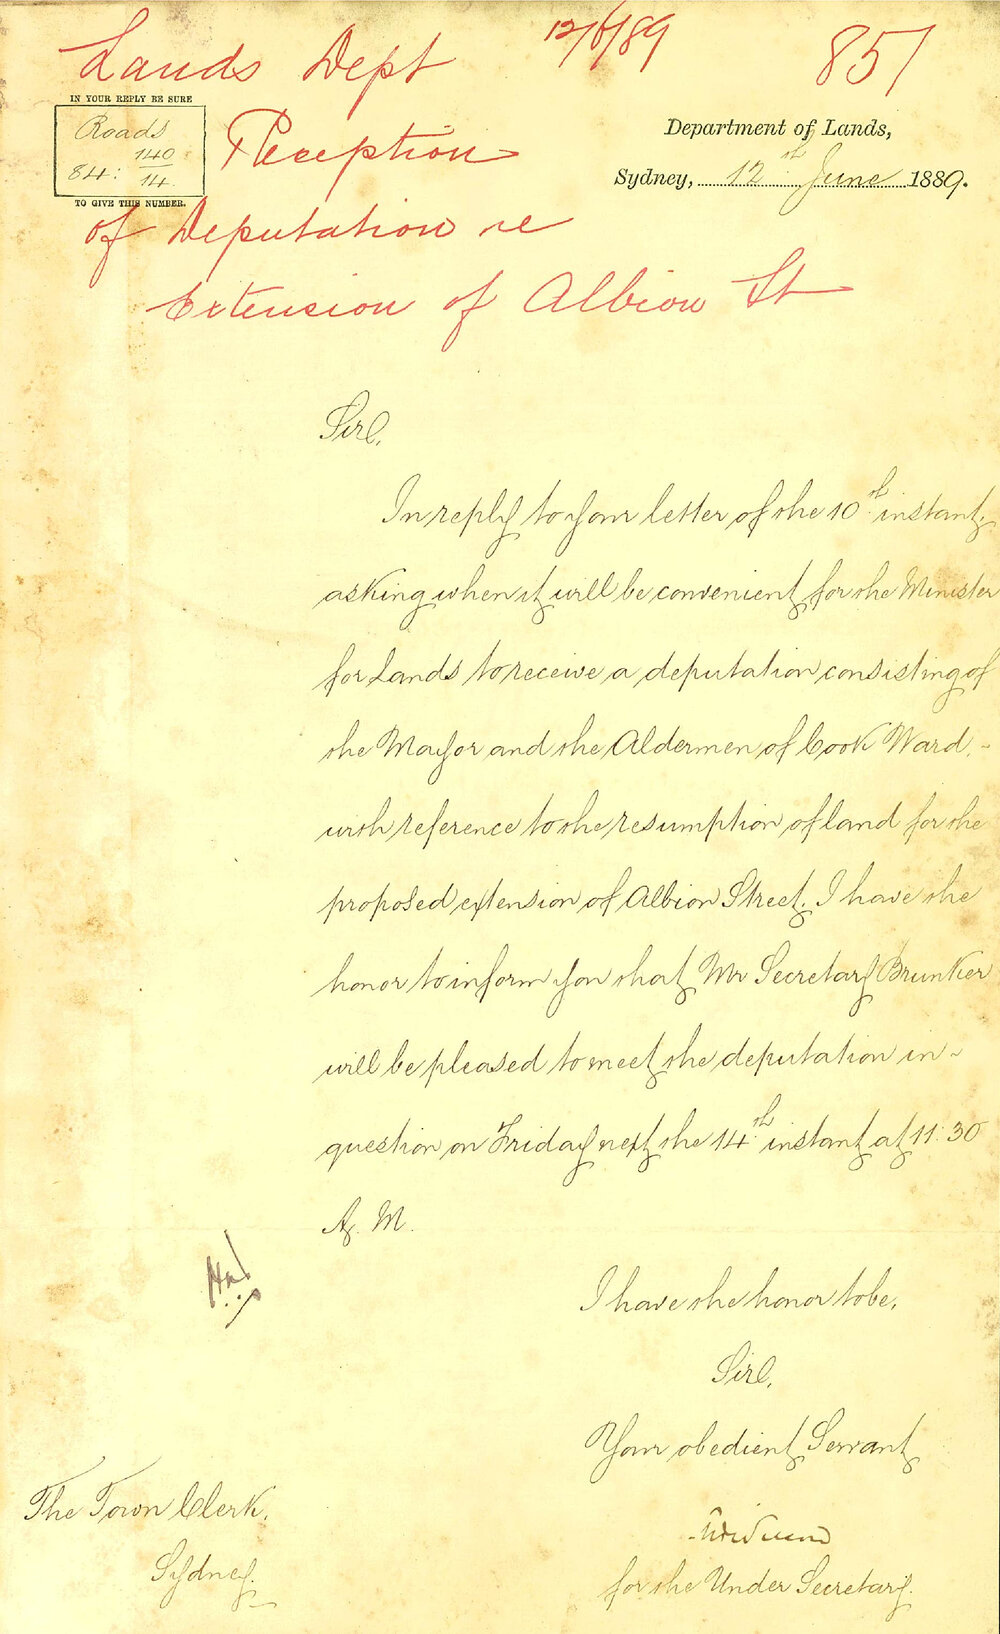 Lands Dept 12/6/89 857
IN YOUR REPLY BE SURE
Roads
84: 140/14
TO GIVE THIS NUMBER.
Reception
of Deputation re
Extension of Albion St
Department of Lands,
Sydney, 12th June 1889.
Sir,
In reply to your letter of the 10th instant,
asking when it will be convenient for the Minister
for Lands to receive a deputation consisting of
the Mayor and the Aldermen of Cook Ward,
with reference to the resumption of land for the
proposed extension of Albion Street, I have the
honor to inform you that Mr Secretary Brunker
will be pleased to meet the deputation in
question on Friday next the 14th instant at 11:30
A. M.
I have the honor to be,
Sir,
Your obedient Servant
for the Under Secretary.
The Town Clerk,
Sydney.